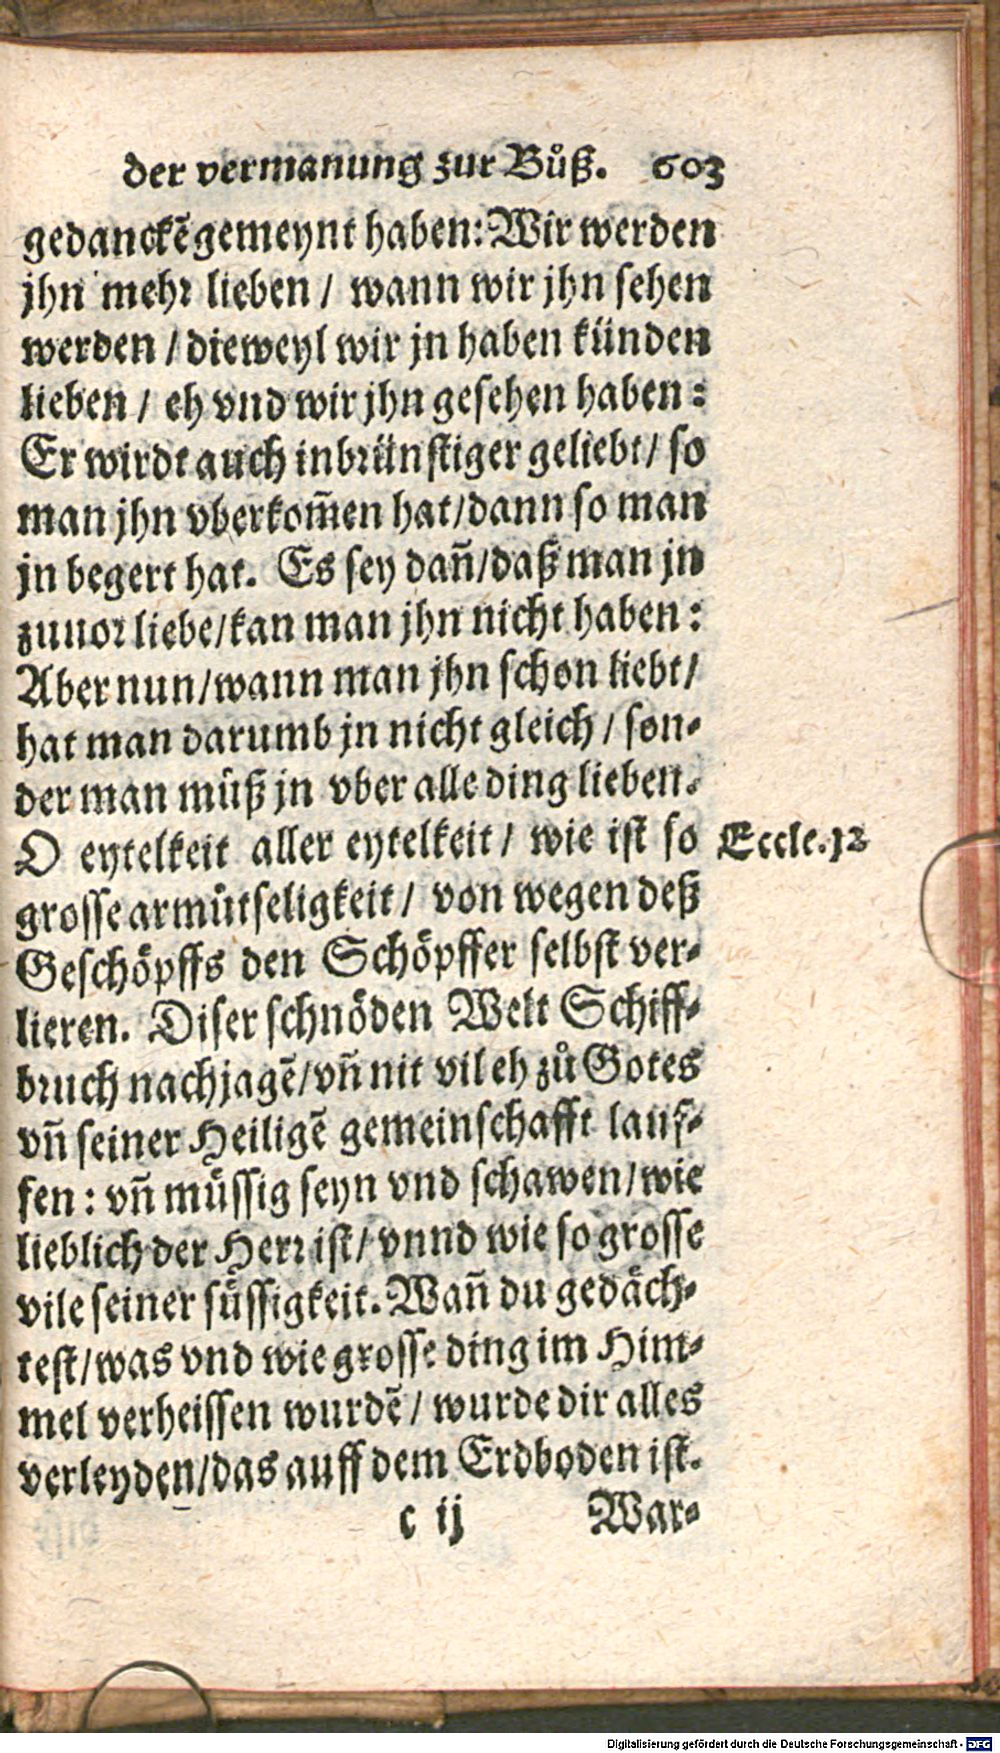 der vermanung zur Bůß. 603
gedanckẽ gemeynt haben: Wir werden
jhn mehr lieben / wann wir jhn sehen
werden / dieweyl wir jn haben künden
lieben / eh vnd wir jhn gesehen haben:
Er wirdt auch inbrünstiger geliebt / so
man jhn vberkom̃en hat / dann so man
jn begert hat. Es sey dañ / daß man jn
zuuor liebe / kan man jhn nicht haben:
Aber nun / wann man jhn schon liebt /
hat man darumb jn nicht gleich / son-
der man můß jn vber alle ding lieben.
O eytelkeit aller eytelkeit / wie ist so
Eccle. 12
grosse armůtseligkeit / von wegen deß
Geschöpffs den Schöpffer selbst ver-
lieren. Diser schnöden Welt Schiff-
bruch nachjagẽ / vñ nit vil eh zů Gotes
vñ seiner Heiligẽ gemeinschafft lauf-
fen: vñ müssig seyn vnd schawen / wie
lieblich der Herr ist / vnnd wie so grosse
vile seiner süssigkeit. Wañ du gedäch-
test / was vnd wie grosse ding im Him-
mel verheissen wurdẽ / wurde dir alles
verleyden / das auff dem Erdboden ist.
c ij War-
Digitalisierung gefördert durch die Deutsche Forschungsgemeinschaft - DFG